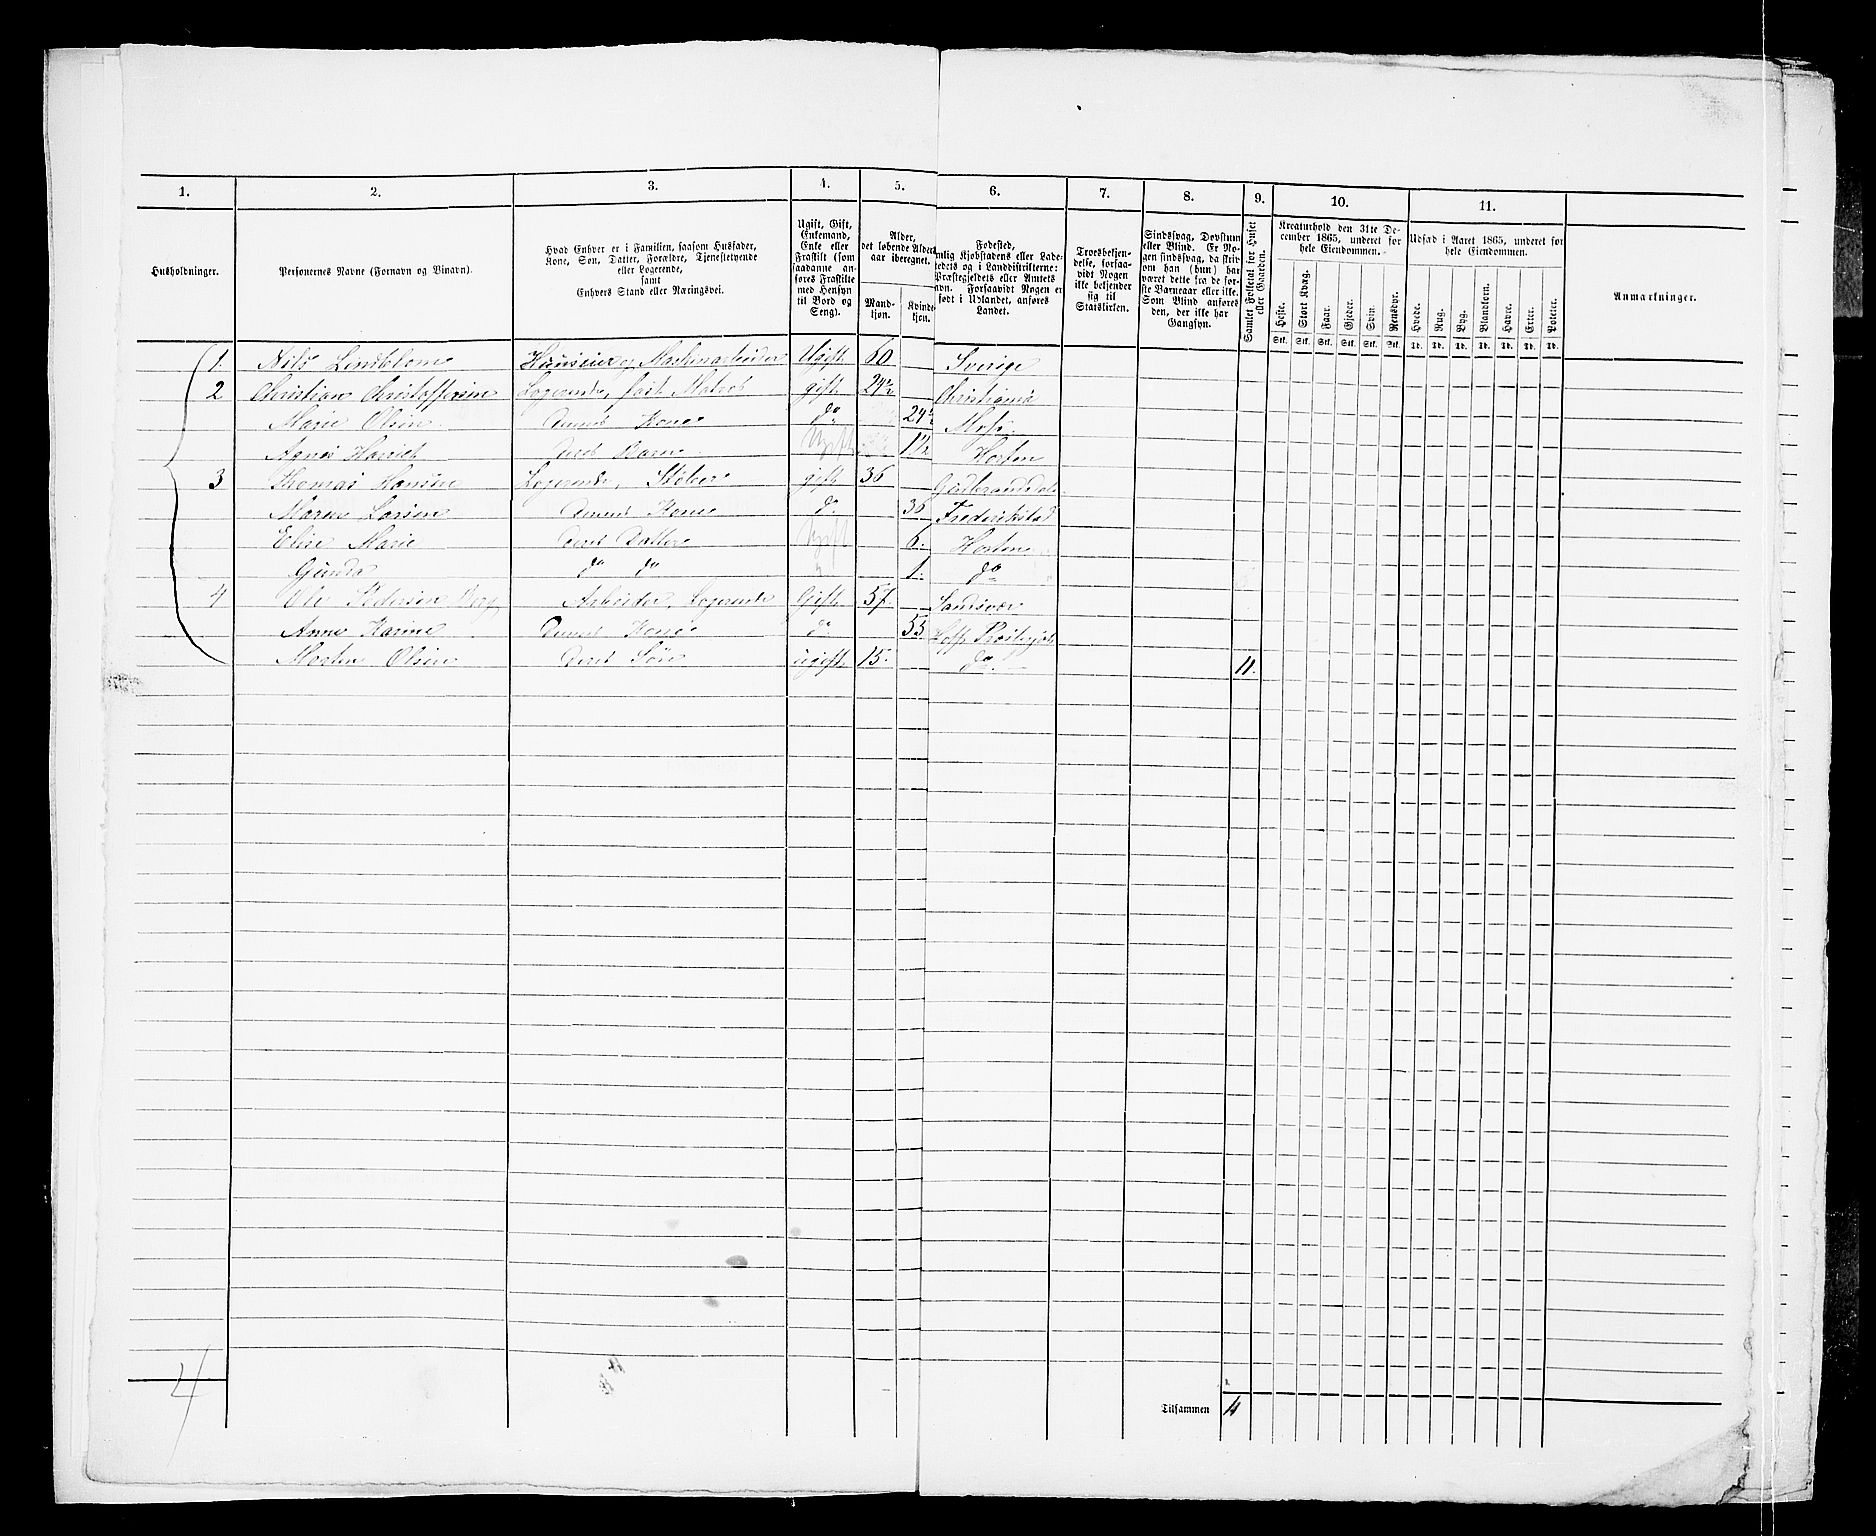 1. 2. 3. 4. 5. 6. 7. 8. 9. 10. 11.
Husholdninger.
Personernes Navne (Fornavn og Binavn).
Hvad Enhver er i Familien, saasom Husfader,
Kone, Søn, Datter, Forældre, Tjenestetyende
eller Logerende,
samt
Enhvers Stand eller Næringsvei.
Ugift, Gift,
Enkemand,
Enke eller
Fraskilt (som
saadanne an-
føres Fraskilte
med Hensyn
til Bord og
Seng).
Alder,
det løbende Alders-
aar iberegnet.
Mand-
kjøn.
Kvinde-
kjøn.
Fødested,
nemlig Kjøbstadens eller Lade-
stedets og i Landdistrikterne:
Præstegjeldets eller Amtets
Navn. Forsaavidt Nogen er
født i Udlandet, anføres
Landet.
Troesbekjen-
delse, forsaa-
vidt Nogen
ikke bekjender
sig til
Statskirken.
Sindssvag, Døvstum
eller Blind. Er No-
gen sindssvag, da skriv
om han (hun) har
været dette fra de før-
ste Barneaar eller ikke.
Som Blind anføres
den, der ikke har
Gangsyn.
Samlet Folketal for Huset
eller Gaarden.
Kreaturhold den 31te De-
cember 1865, underet for
hele Eiendommen.
Heste. Stort Kvæg. Faar. Gjeder. Svin. Rensdyr.
Stk. Stk. Stk. Stk. Stk. Stk.
Udsæd i Aaret 1865, underet for
hele Eiendommen.
Hvede. Rug. Byg. Blandkorn. Havre. Erter. Poteter.
Td. Td. Td. Td. Td. Td. Td.
Anmærkninger.
1. Nils Lindblom Huuseier og Maskinarbeider Ugift 60 Sverige
2 Christian Christoffersen Logerende, fast Matros gift 24 Christiania
Marie Olsen Kone do 24 Moss
Agnes Harriet deres Barn Ugift Horten
3 Thomas Hansen Logerende, Støber gift 36 Gudbrandsdalen
Maren Larsen Kone do. 36 Frederikstad
Elise Marie deres Datter Ugift 6. Horten
Gunda do do 1. do
4 Ole Pedersen Berg Arbeider, Logerende Gift 57. Sandsvær
Anne Karine Kone do. 55
Morten Olsen deres Søn ugift 15. do. 11.
4
Tilsammen 11